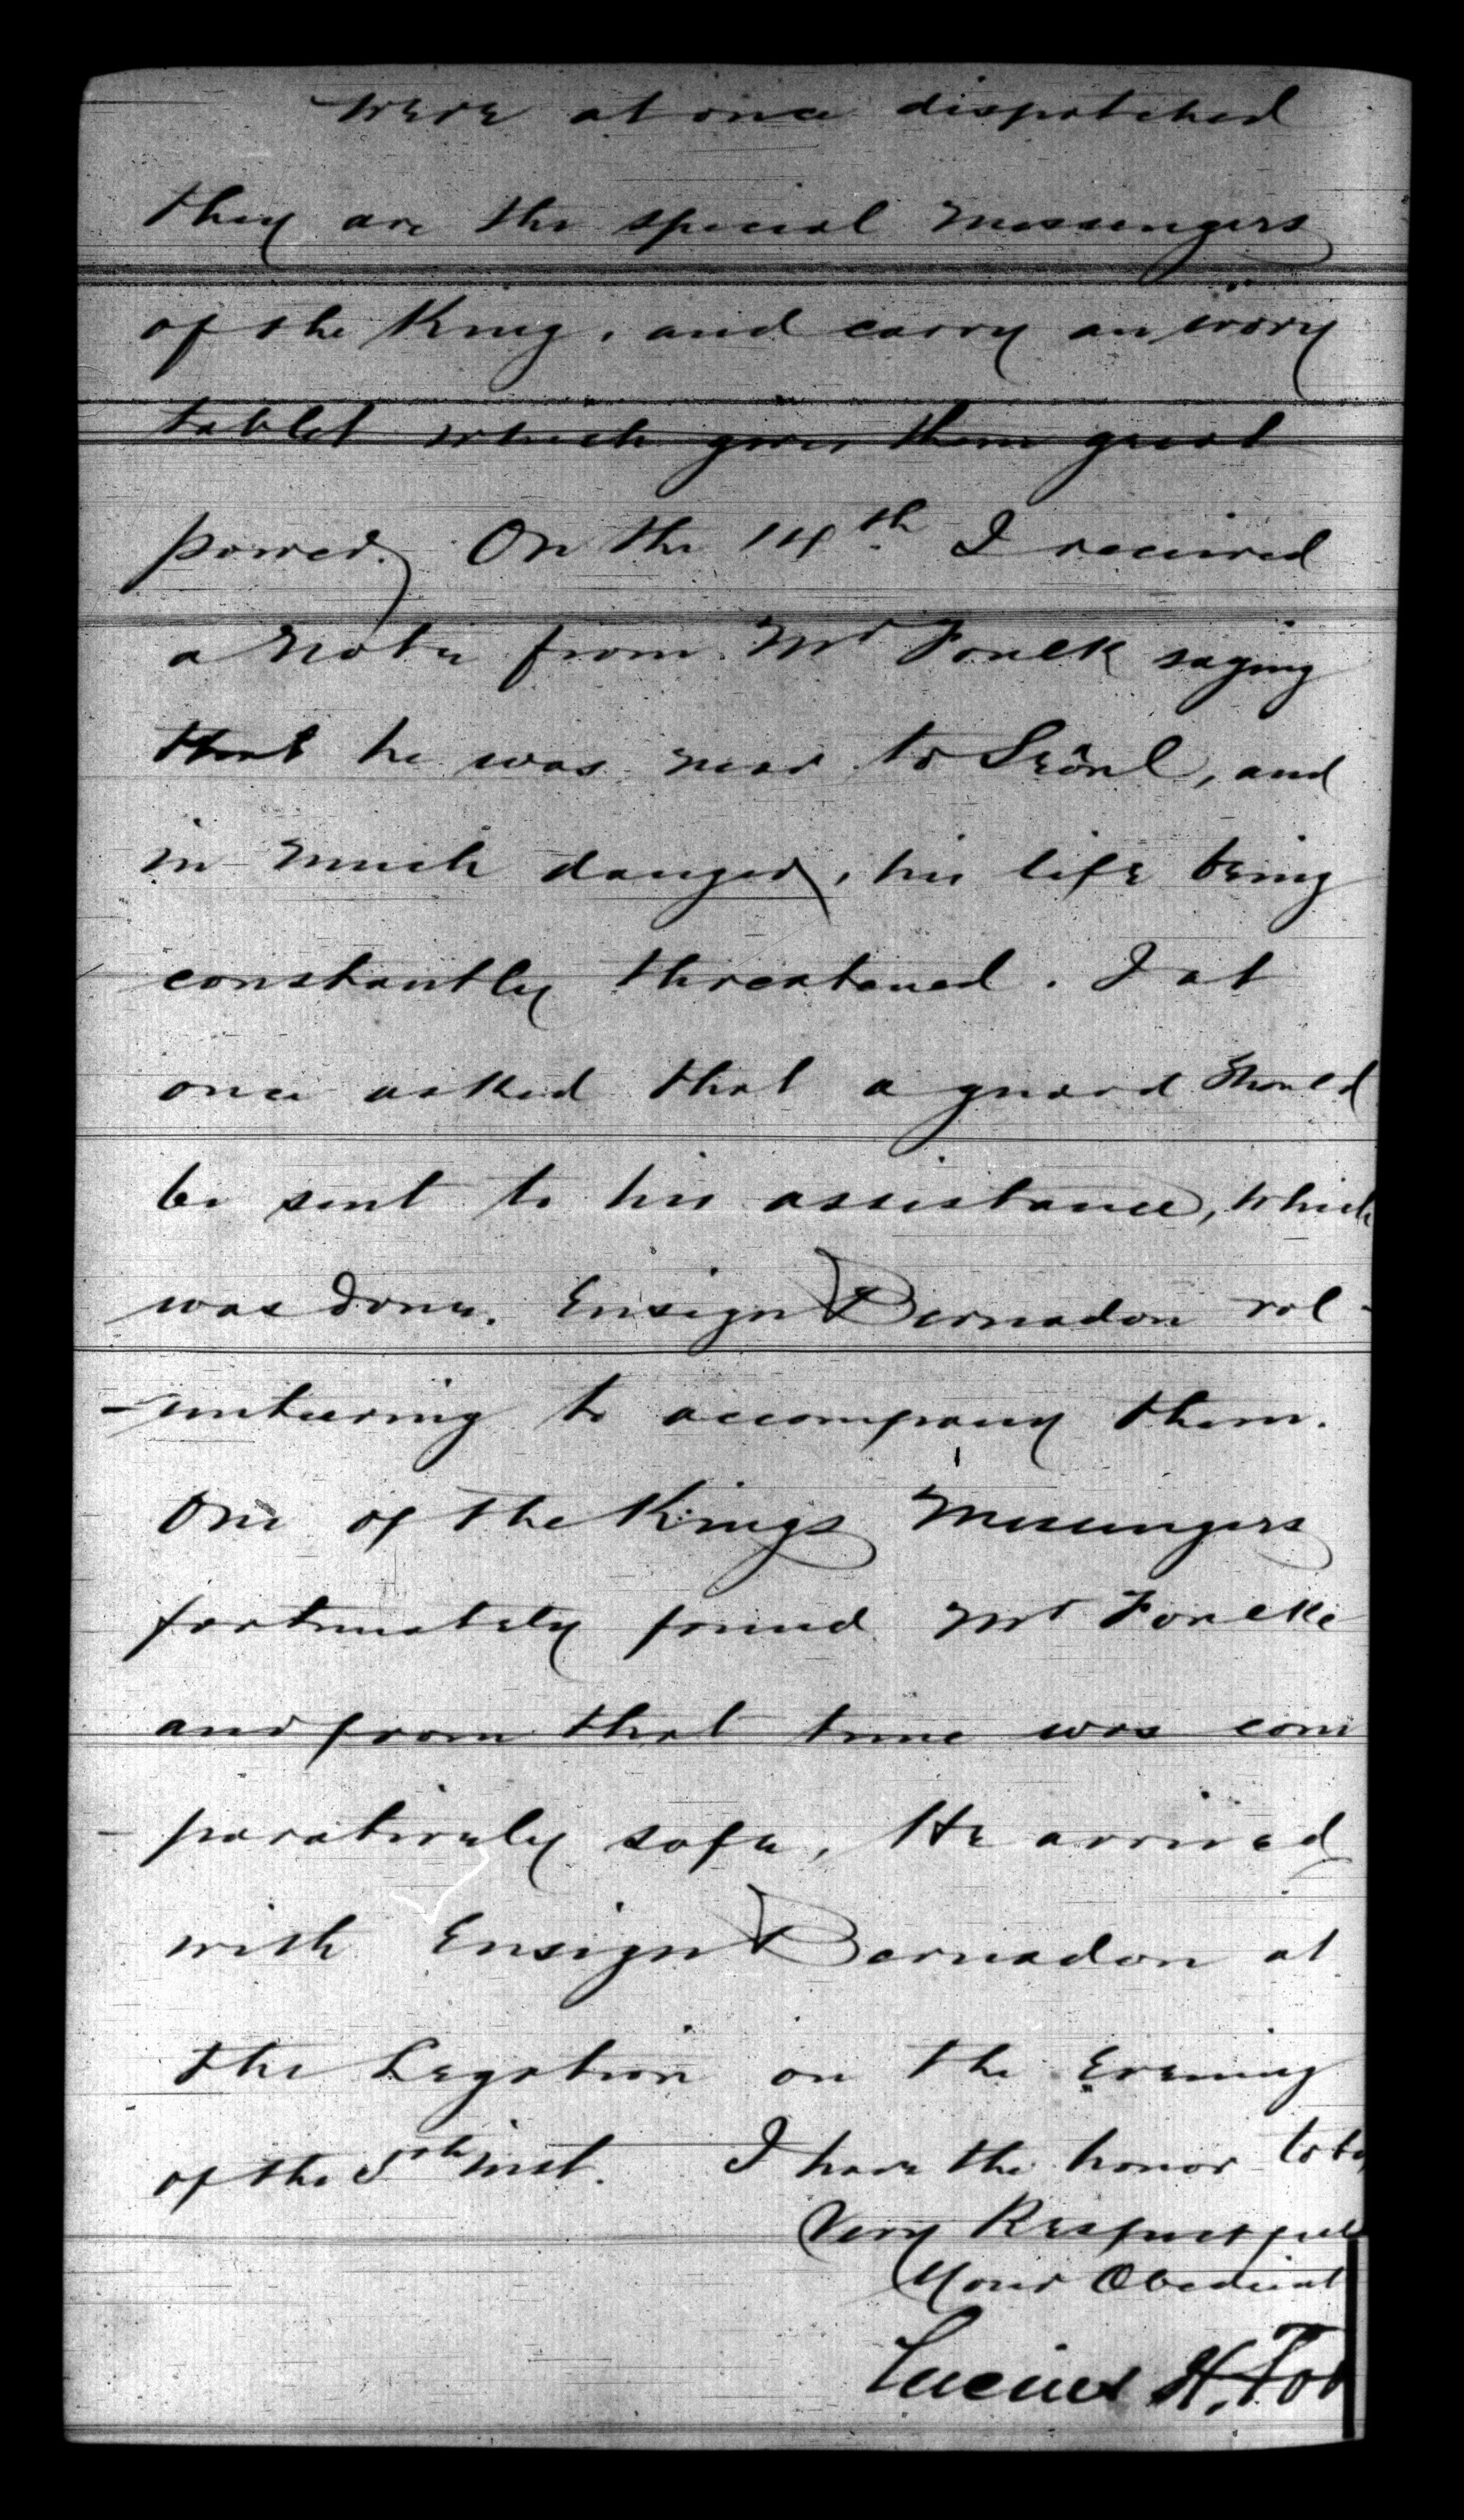 were at once dispatched
they are the special messengers
of the King, and carry an ivory
tablet which gives them great
power. On the 14th I received
a note from Mr Foulk saying
that he was near to Seôul, and
in much danger, his life being
constantly threatened. I at
once asked that a guard should
be sent to his assistance, which
was done. Ensign Bernadon vol-
-unteering to accompany them.
One of the Kings Messengers
fortunately found Mr Foulke
and from that time was com
-paratively safe, He arrived
with Ensign Bernadon at
the Legation on the evening
of the 5th inst. I have the honor to be
Very Respectful
Your Obedient
Lucius H. Foo